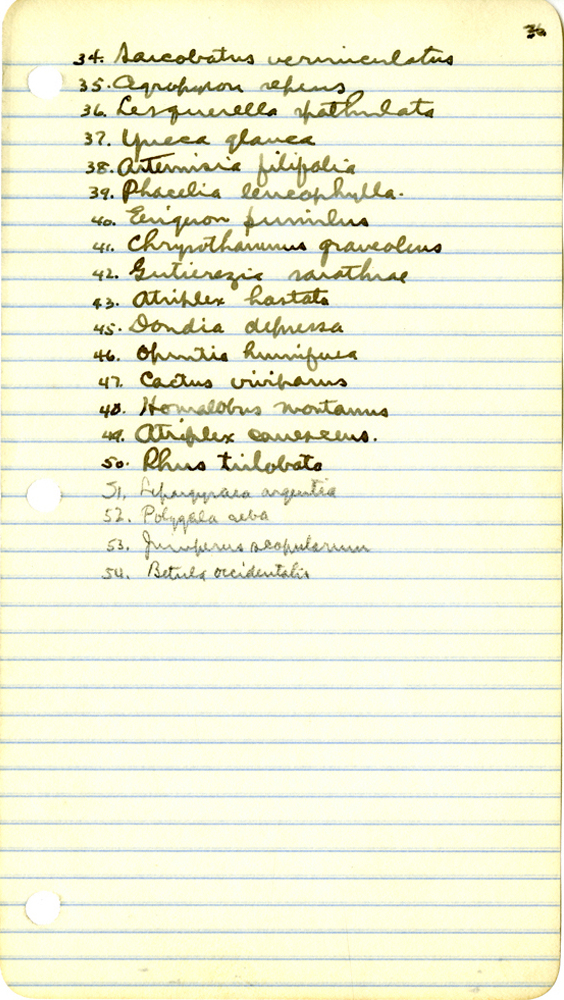 36
34. Sarcobatus vermiculatus
35. Agropyron repens
36. Lesquerella spathulata
37. Yucca glauca
38. Artemisia filifolia
39. Phacelia leucophylla.
40. Erigeron pumilus
41. Chrysothamnus graveolens
42. Gutierezia sarothrae
43. Atriplex hastata
45. Dondia depressa
46. Opuntia humifusa
47. Cactus viviparus
48. Homalobus montanus
49. Atriplex canescens.
50. Rhus trilobata
51. Lepargyraea argentea
52. Polygala alba
53. Juniperus scopularum
54. Betula occidentalis